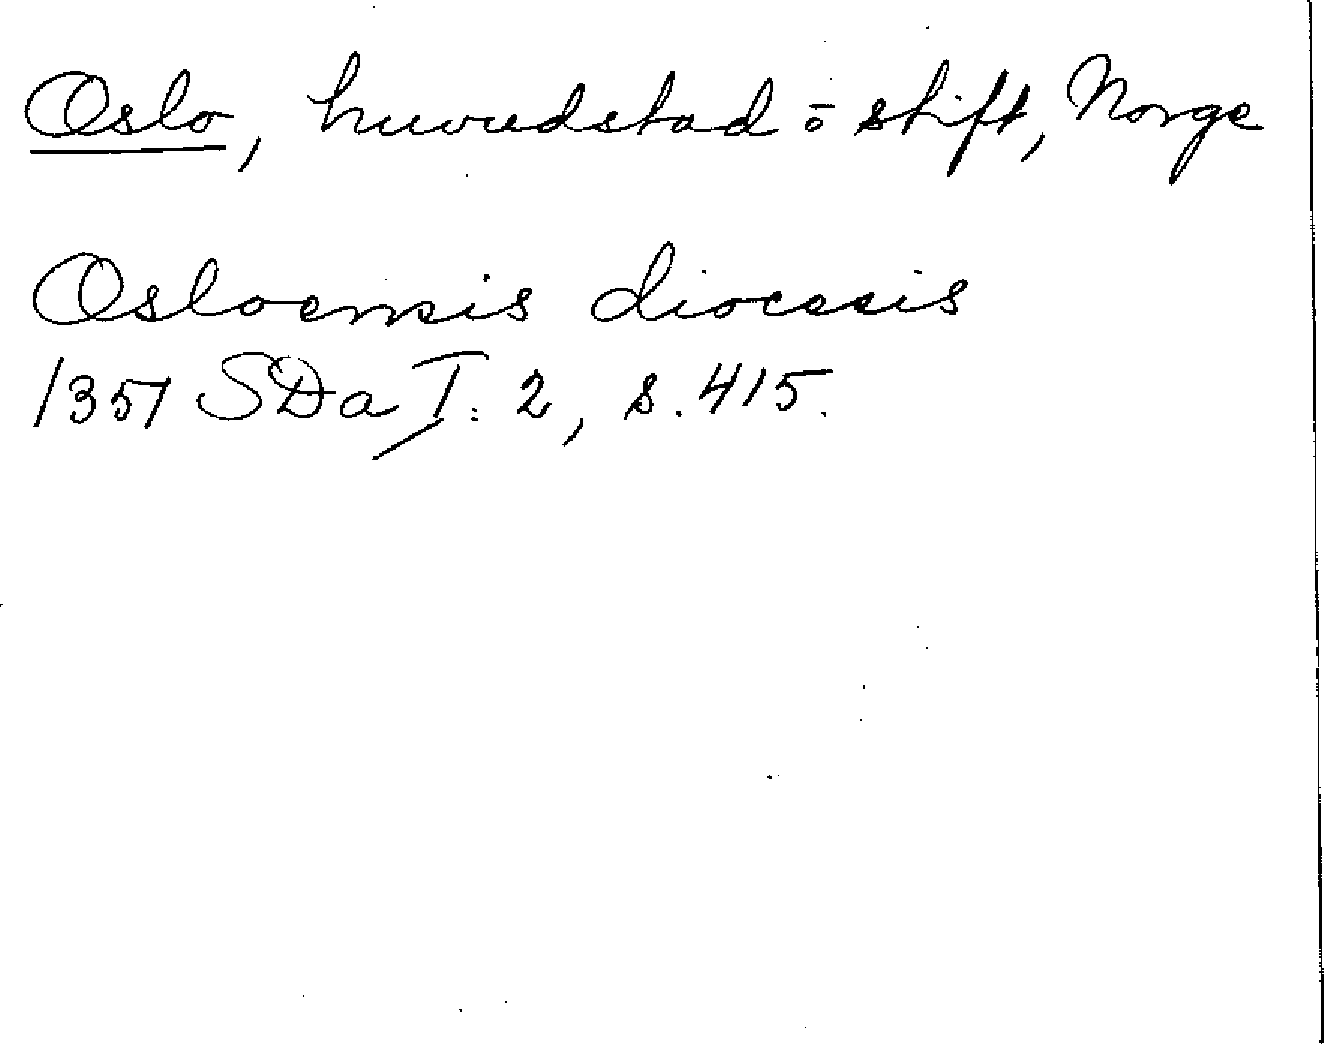 Oslo, huvudstad o stift, Norge
Osloensis diocesis
1357 SDa I: 2, s. 415.